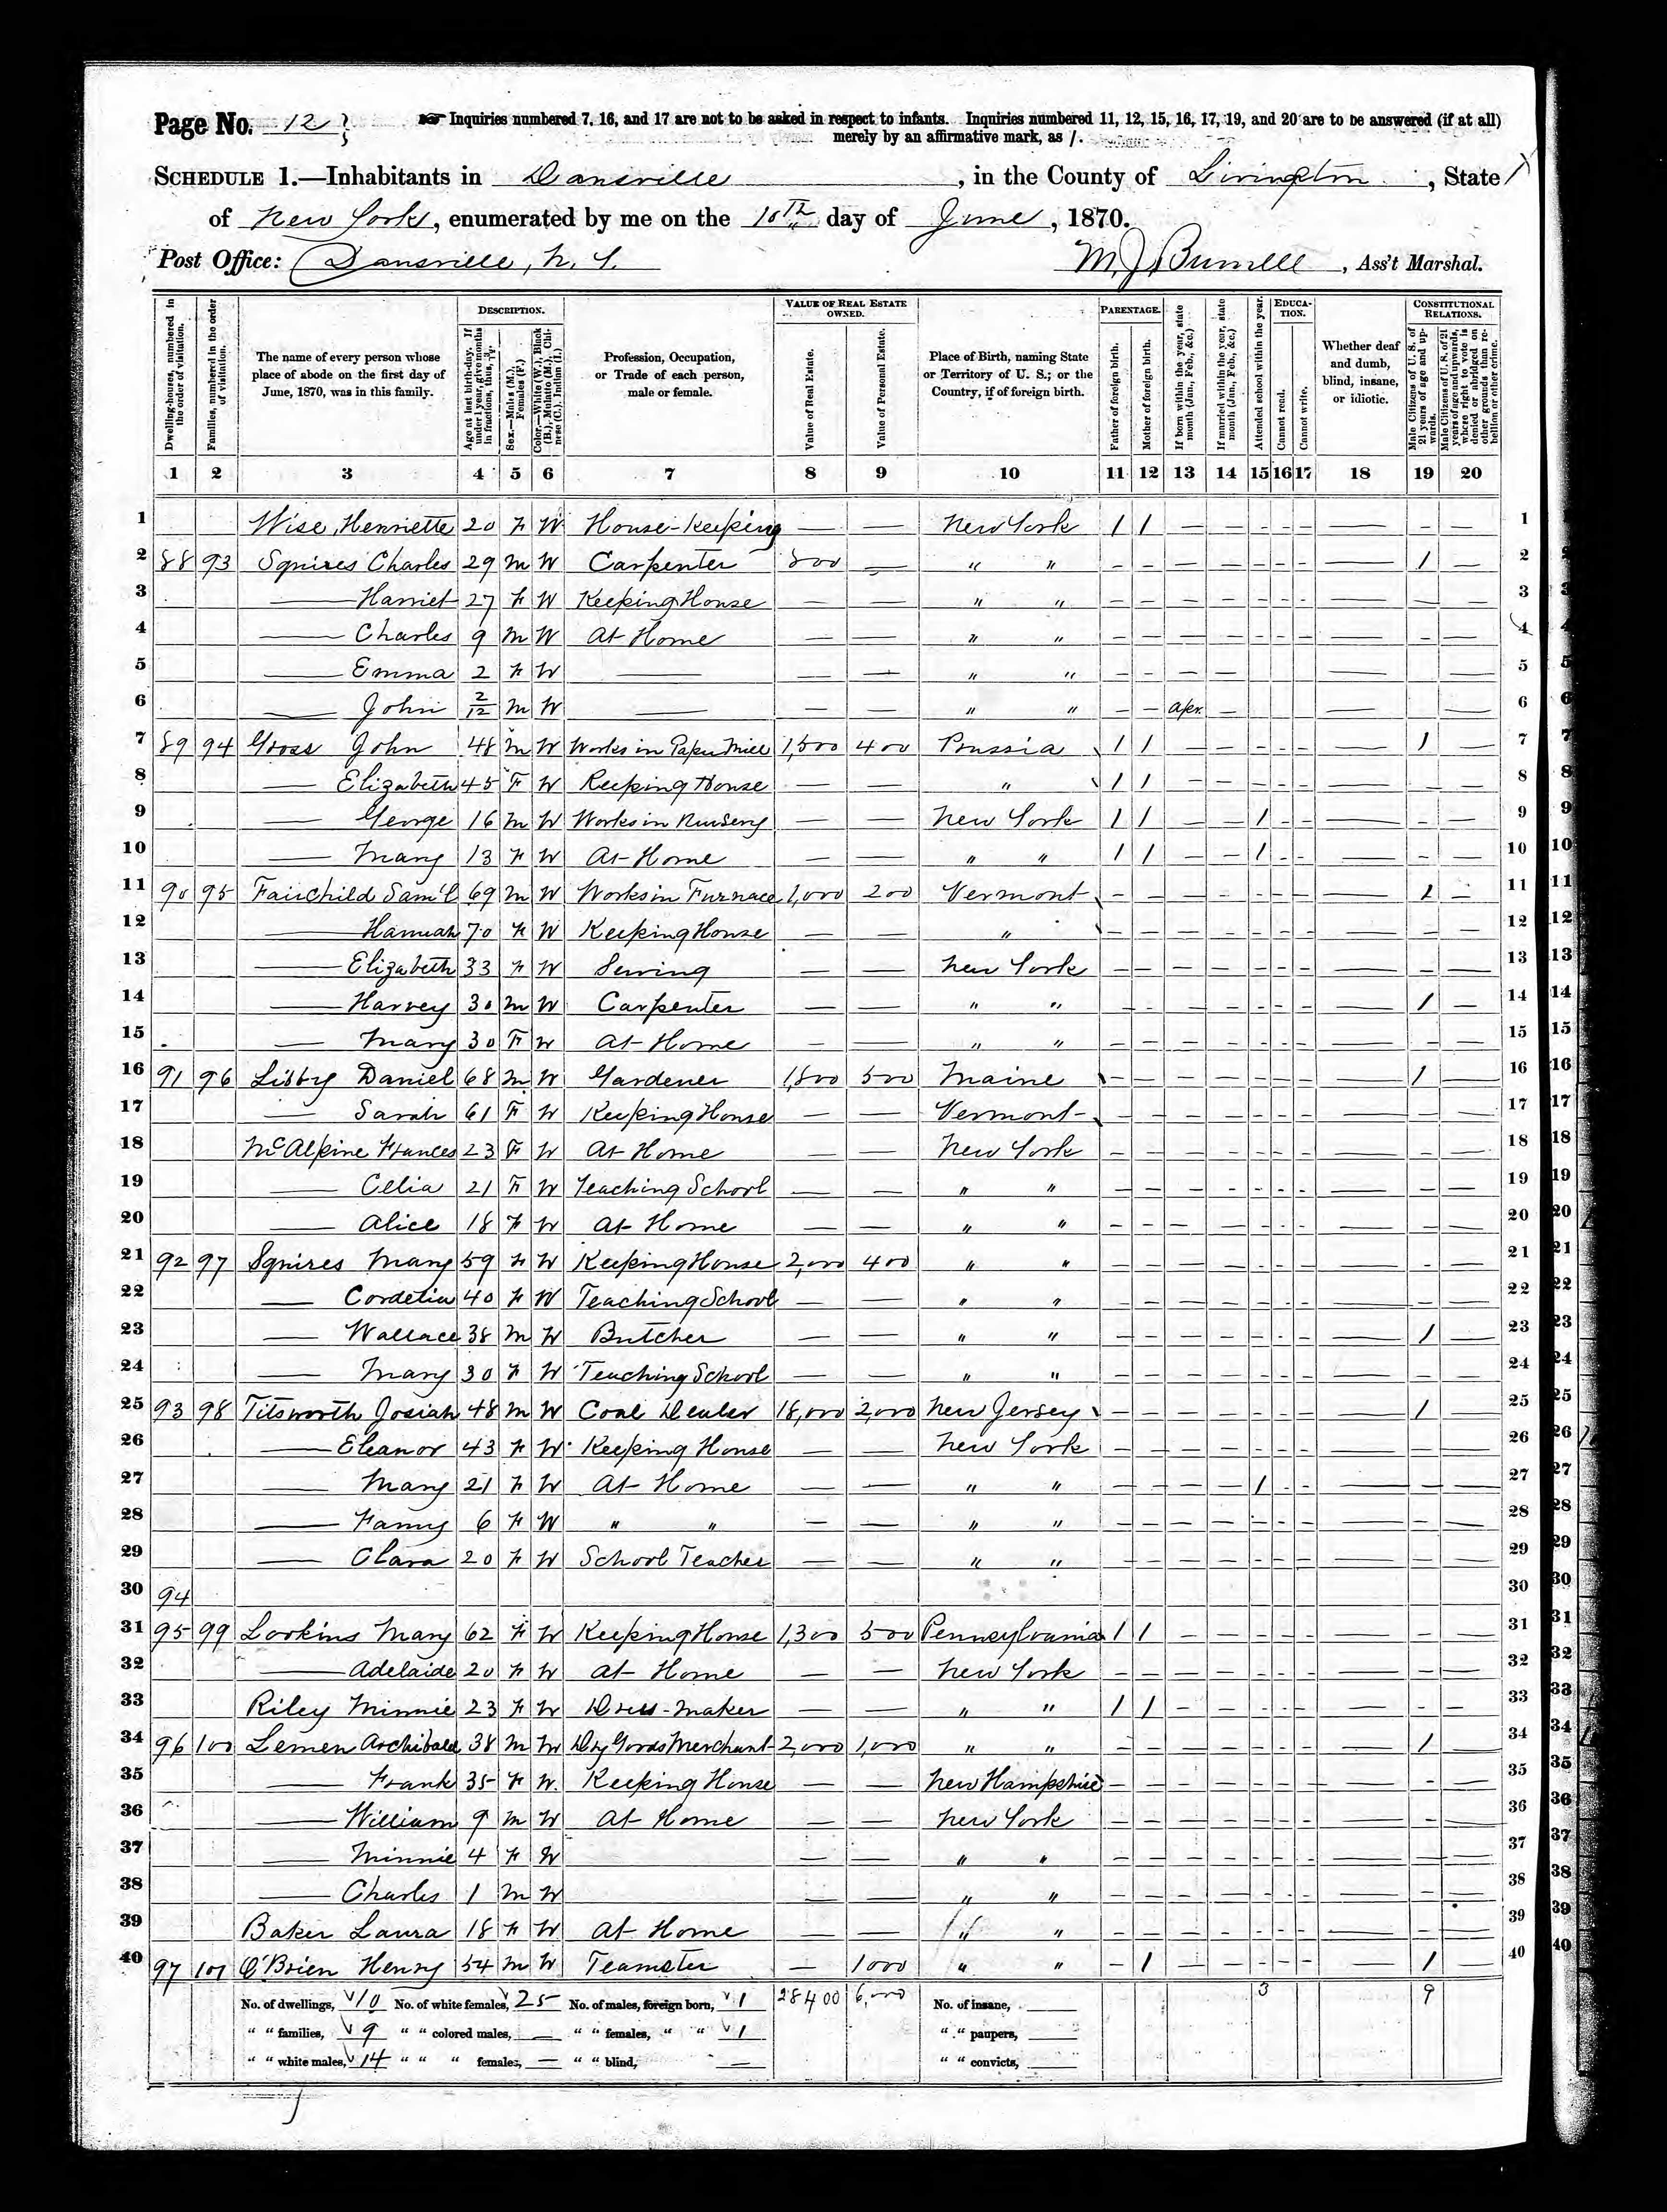 Page No. 12
Inquiries numbered 7, 16, and 17 are not to be asked in respect to infants. Inquiries numbered 11, 12, 15, 16, 17, 19, and 20 are to be answered (if at all)
merely by an affirmative mark, as /.
SCHEDULE 1.—Inhabitants in Dansville, in the County of Livingston, State
of New York, enumerated by me on the 10th day of June, 1870.
Post Office: Dansville, N. Y. , Ass't Marshal.
Dwelling-houses, numbered in the order of visitation.
Families, numbered in the order of visitation.
The name of every person whose place of abode on the first day of June, 1870, was in this family.
DESCRIPTION.
Age at last birth-day. If under 1 year, give months in fractions, thus, 3/12.
Sex.—Males (M.), Females (F.)
Color.—White (W.), Black (B.), Mulatto (M.), Chinese (C.), Indian (I.)
Profession, Occupation, or Trade of each person, male or female.
VALUE OF REAL ESTATE OWNED.
Value of Real Estate.
Value of Personal Estate.
Place of Birth, naming State or Territory of U. S.; or the Country, if of foreign birth.
PARENTAGE.
Father of foreign birth.
Mother of foreign birth.
If born within the year, state month (Jan., Feb., &c.)
If married within the year, state month (Jan., Feb., &c.)
Attended school within the year.
EDUCATION.
Cannot read.
Cannot write.
Whether deaf and dumb, blind, insane, or idiotic.
CONSTITUTIONAL RELATIONS.
Male Citizens of U. S. of 21 years of age and upwards.
Male Citizens of U. S. of 21 years of age and upwards, where right to vote is denied or abridged on other grounds than rebellion or other crime.
1 2 3 4 5 6 7 8 9 10 11 12 13 14 15 16 17 18 19 20
1 Wise, Henriette 20 F W House-Keeping — — New York / / 1
2 88 93 Squires Charles 29 M W Carpenter 800 — " " / 2
3 — Harriet 27 F W Keeping House — — " " 3
4 — Charles 9 M W At Home — — " " 4
5 — Emma 2 F W — — — " " 5
6 — John 2/12 M W — — — " " Apr. 6
7 89 94 Gross John 48 M W Works in Paper Mill 1,500 400 Prussia / / / 7
8 — Elizabeth 45 F W Keeping House — — " / / 8
9 — George 16 M W Works in Nursery — — New York / / / 9
10 — Mary 13 F W At Home — — " " / / / 10
11 90 95 Fairchild Sam'l 69 M W Works in Furnace 1,000 200 Vermont / 11
12 — Hannah 70 F W Keeping House — — " 12
13 — Elizabeth 33 F W Sewing — — New York 13
14 — Harvey 30 M W Carpenter — — " " / 14
15 — Mary 30 F W At Home — — " " 15
16 91 96 Libby Daniel 68 M W Gardener 1,800 500 Maine / 16
17 — Sarah 61 F W Keeping House — — Vermont 17
18 McAlpine Frances 23 F W At Home — — New York 18
19 — Celia 21 F W Teaching School — — " " 19
20 — Alice 18 F W At Home — — " " 20
21 92 97 Squires Mary 59 F W Keeping House 2,000 400 " " 21
22 — Cordelia 40 F W Teaching School — — " " 22
23 — Wallace 38 M W Butcher — — " " / 23
24 — Mary 30 F W Teaching School — — " " 24
25 93 98 Titsworth Josiah 48 M W Coal Dealer 18,000 2,000 New Jersey / 25
26 — Eleanor 43 F W Keeping House — — New York 26
27 — Mary 21 F W At Home — — " " / 27
28 — Fanny 6 F W " " — — " " 28
29 — Clara 20 F W School Teacher — — " " 29
30 94 30
31 95 99 Lookins Mary 62 F W Keeping House 1,300 500 Pennsylvania / / 31
32 — Adelaide 20 F W At Home — — New York 32
33 Riley Minnie 23 F W Dress-maker — — " " / / 33
34 96 100 Lemen Archibald 38 M W Dry Goods Merchant 2,000 1,000 " " / 34
35 — Frank 35 F W. Keeping House — — New Hampshire 35
36 — William 9 M W At Home — — New York 36
37 — Minnie 4 F W — — " " 37
38 — Charles 1 M W — — " " 38
39 Baker Laura 18 F W At Home — — " " 39
40 97 101 O'Brien Henry 54 M W Teamster — 1000 " " / / 40
No. of dwellings, 10 No. of white females, 25 No. of males, foreign born, 1 28400 6,000 No. of insane, 3 9
" " families, 9 " " colored males, — " " females, " " 1 " " paupers,
" " white males, 14 " " " females, — " " blind, — " " convicts,